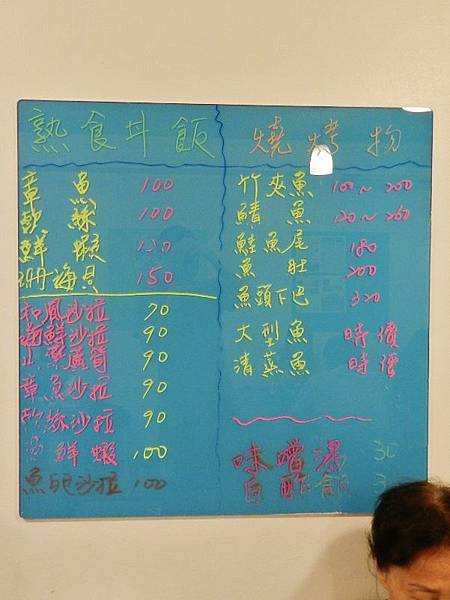 熟食丼飯
章魚 100
軟絲 100
鮮蝦 120
珊瑚貝 150
和風沙拉 70
海鮮沙拉 90
山藥蘆筍 90
章魚沙拉 90
軟絲沙拉 90
鮮蝦 100
魚卵沙拉 100
燒烤物
竹夾魚 100~200
鯖魚 120~200
鮭魚尾 180
魚肚 200
魚頭下巴 320
大型魚 時價
清蒸魚 時價
味噌湯 30
白酢飯